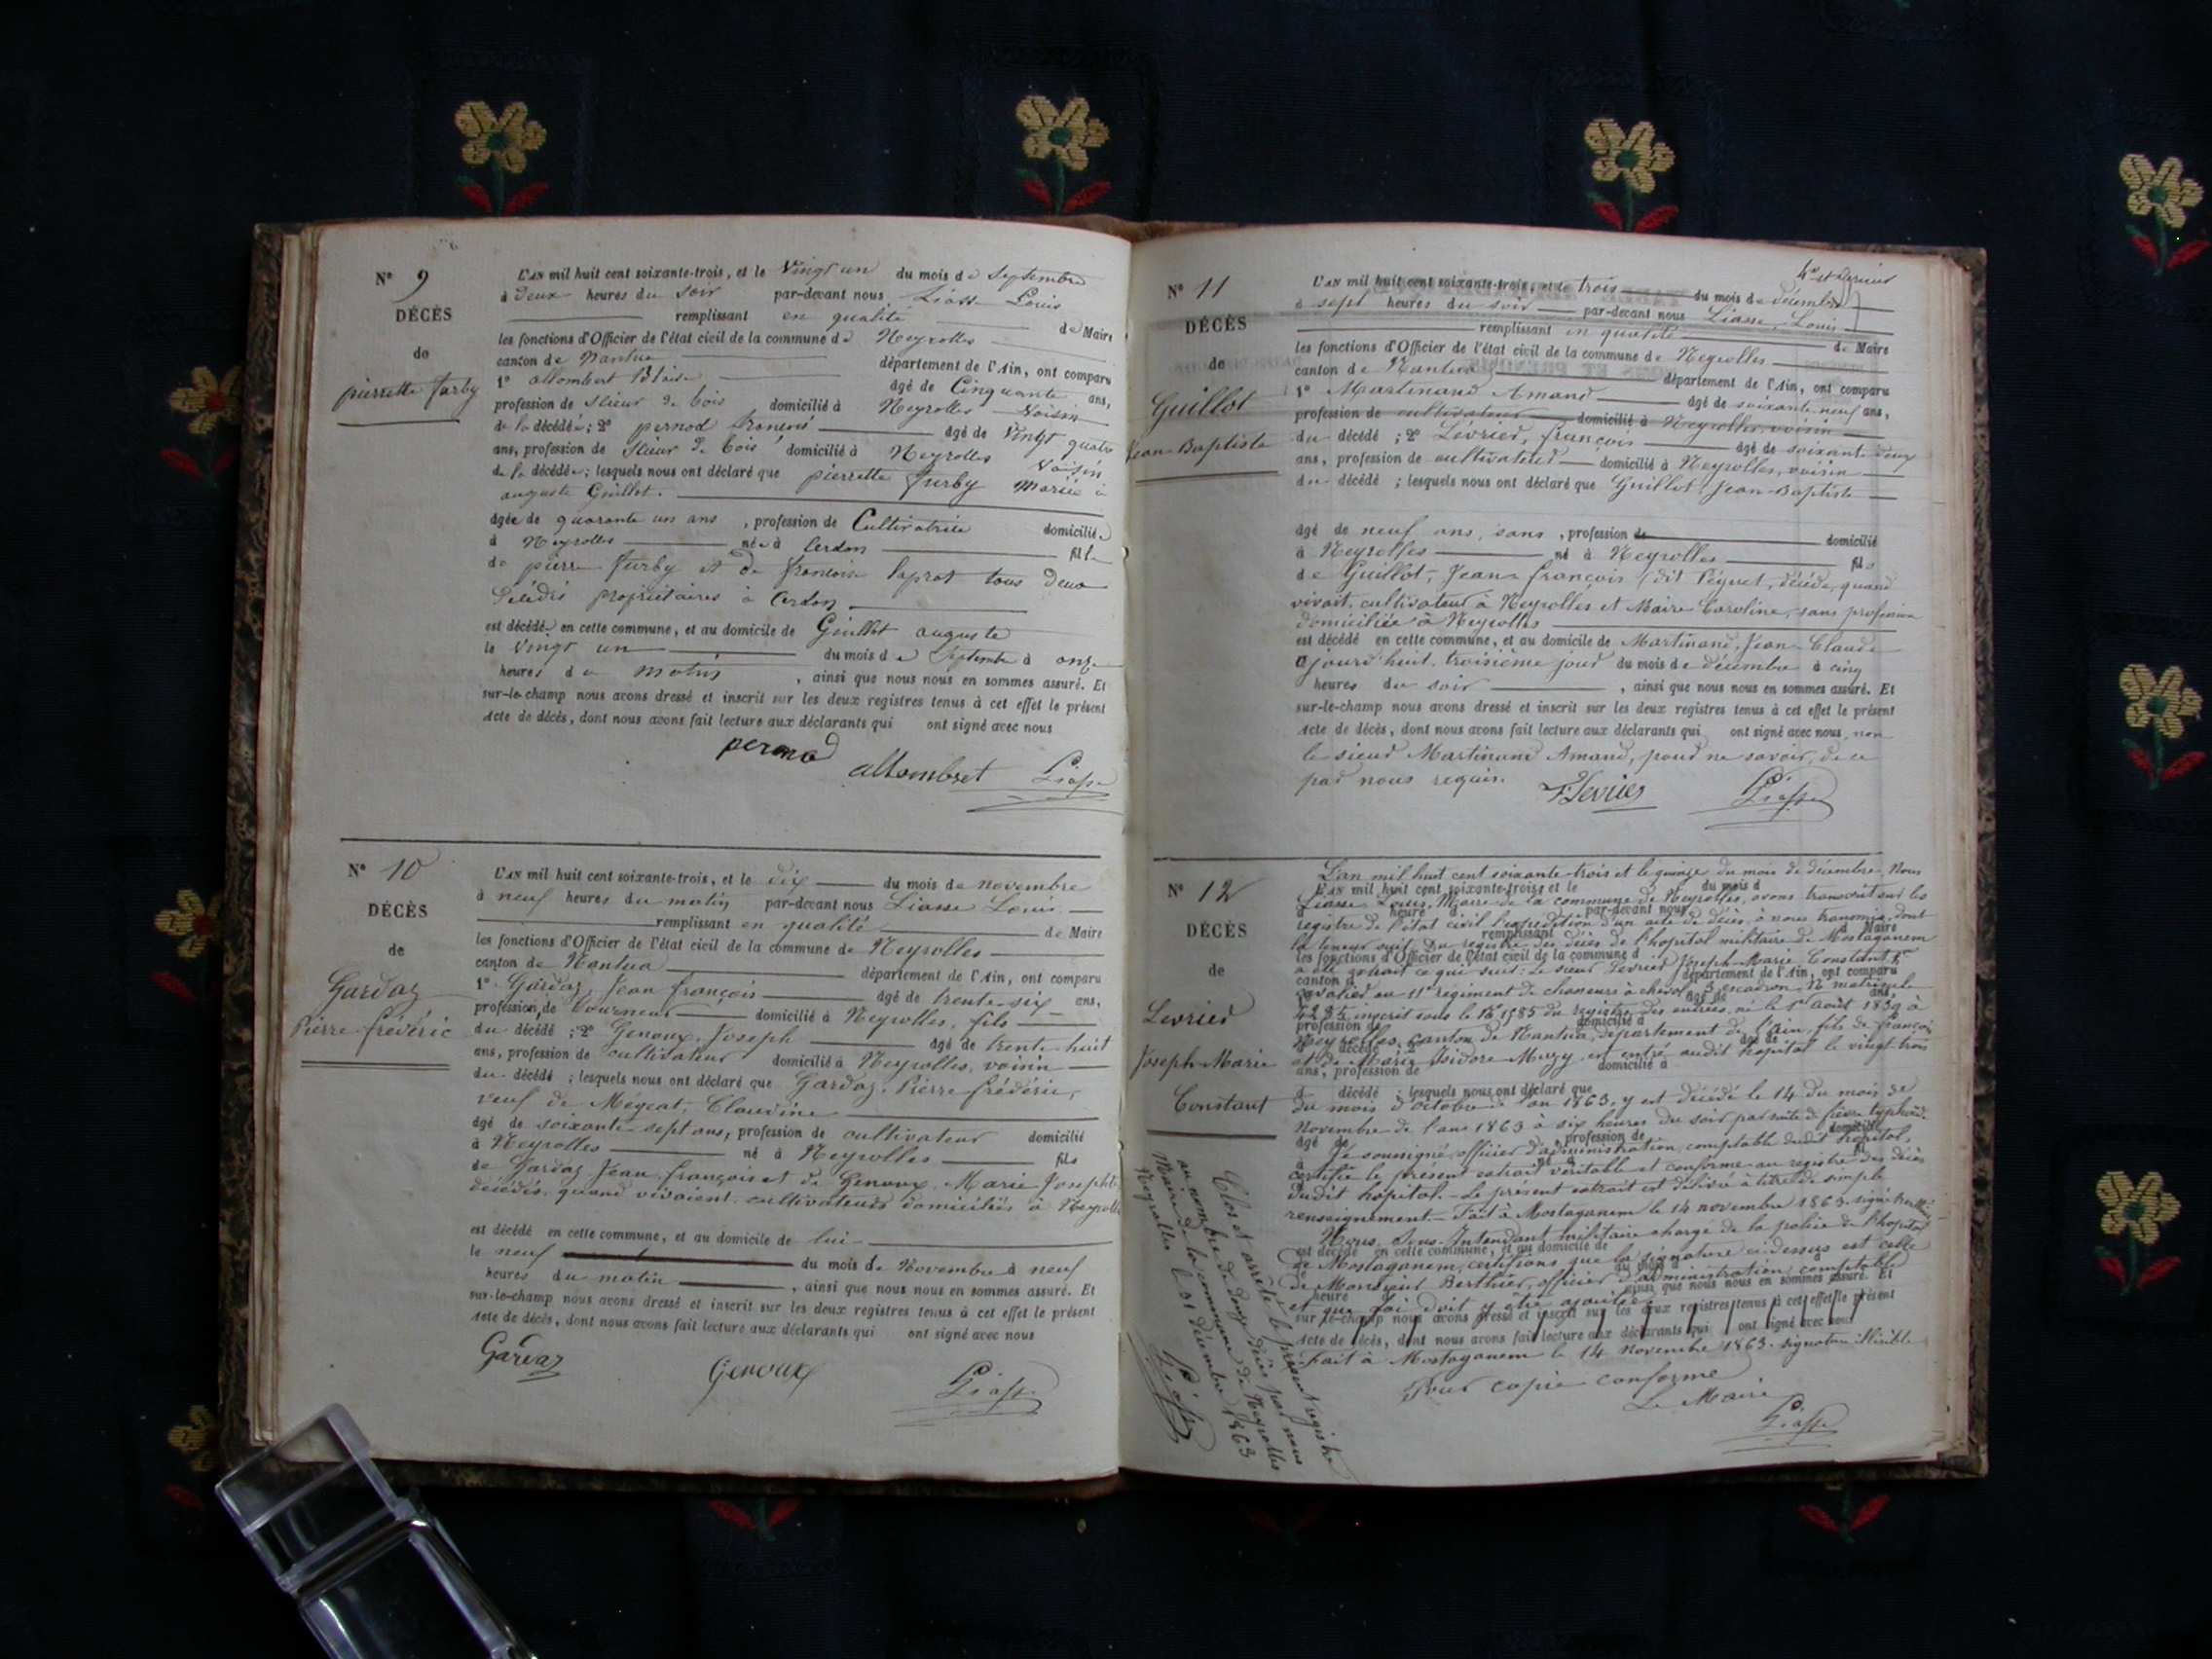 N° 9
DÉCÈS
de
pierrette furby
L'AN mil huit cent soixante-trois, et le vingt un du mois de Septembre
à deux heures du Soir par-devant nous, Liasse Louis
remplissant en qualité de Maire
les fonctions d'Officier de l'état civil de la commune de Neyrolles
canton de Nantua département de l'Ain, ont comparu
1° allombert Blaise âgé de Cinquante ans,
profession de Scieur de bois domicilié à Neyrolles Voisin
de la décédée; 2° pernod françois âgé de Vingt quatre
ans, profession de Scieur de bois domicilié à Neyrolles Voisin
de la décédée; lesquels nous ont déclaré que pierrette furby Mariée à
auguste Guillot.
âgée de quarante un ans, profession de Cultivatrice domiciliée
à Neyrolles née à Cerdon fille
de pierre furby et de françoise tous deux
décédés propriétaires à Cerdon
est décédée en cette commune, et au domicile de Guillot auguste
le Vingt un du mois de Septembre à onze
heures du matin, ainsi que nous nous en sommes assuré. Et
sur-le-champ nous avons dressé et inscrit sur les deux registres tenus à cet effet le présent
Acte de décès, dont nous avons fait lecture aux déclarants qui ont signé avec nous
pernod
allombert Liasse
N° 10
DÉCÈS
de
Gardaz
Pierre-frédéric
L'AN mil huit cent soixante-trois, et le dix du mois de novembre
à neuf heures du matin par-devant nous Liasse Louis
remplissant en qualité de Maire
les fonctions d'Officier de l'état civil de la commune de Neyrolles
canton de Nantua département de l'Ain, ont comparu
1° Gardaz, Jean françois âgé de trente-six ans,
profession de tourneur domicilié à Neyrolles, fils
du décédé; 2° Genoux, Joseph âgé de trente-huit
ans, profession de cultivateur domicilié à Neyrolles, voisin
du décédé; lesquels nous ont déclaré que Gardaz, Pierre-frédéric,
veuf de Mégeat, Claudine
âgé de soixante-sept ans, profession de cultivateur domicilié
à Neyrolles né à Neyrolles fils
de Gardaz Jean françois et de Genoux, Marie Josephte
décédés, quand vivaient cultivateurs domiciliés à Neyrolles
est décédé en cette commune, et au domicile de lui
le neuf du mois de Novembre à neuf
heures du matin, ainsi que nous nous en sommes assuré. Et
sur-le-champ nous avons dressé et inscrit sur les deux registres tenus à cet effet le présent
Acte de décès, dont nous avons fait lecture aux déclarants qui ont signé avec nous
Gardaz Genoux Liasse
et dernier
N° 11
DÉCÈS
de
Guillot
Jean-Baptiste
L'AN mil huit cent soixante-trois, et le trois du mois de décembre
à sept heures du soir par-devant nous Liasse Louis
remplissant en qualité de Maire
les fonctions d'Officier de l'état civil de la commune de Neyrolles
canton de Nantua département de l'Ain, ont comparu
1° Martinand Amand âgé de soixante-neuf ans,
profession de cultivateur domicilié à Neyrolles, voisin
du décédé; 2° Lévrier, françois âgé de soixante-deux
ans, profession de cultivateur domicilié à Neyrolles, voisin
du décédé; lesquels nous ont déclaré que Guillot, Jean-Baptiste
âgé de neuf ans, sans, profession de domicilié
à Neyrolles né à Neyrolles fils
de Guillot, Jean-françois, dit décédé, quand
vivait, cultivateur à Neyrolles et Maire Caroline, sans profession
domiciliée à Neyrolles
est décédé en cette commune, et au domicile de Martinand, Jean-Claude
ajourd'huit, troisième jour du mois de décembre à cinq
heures du soir, ainsi que nous nous en sommes assuré. Et
sur-le-champ nous avons dressé et inscrit sur les deux registres tenus à cet effet le présent
Acte de décès, dont nous avons fait lecture aux déclarants qui ont signé avec nous, non
le sieur Martinand Amand, pour ne savoir, de ce
par nous requis.
F Levrier Liasse
N° 12
DÉCÈS
de
Levrier
Joseph-Marie
Constant
L'an mil huit cent soixante-trois et le quinze du mois de décembre, Nous
Liasse Louis, Maire de la commune de Neyrolles, avons transcrit sur les
registre de l'état civil l'expédition d'un acte de décès, à nous transmis, dont
la teneur suit. Du registre des décès de l'hopital militaire de Mostaganem
a été extrait ce qui suit: Le sieur Levrier Joseph-Marie Constant
cavalier au 11e régiment de chasseurs à cheval, 3 escadron N° matricule
inscrit sous le N° 1985 du registre des entrées, né le 1er Août 1839 à
Neyrolles, canton de Nantua, département de l'Ain, fils de françois
et de Marie Isidore Muzy, est entré audit hopital le vingt-trois
du mois d'octobre de l'an 1863, y est décédé le 14 du mois de
Novembre de l'an 1863 à six heures du soir par suite de fièvre typhoïde.
Je soussigné, officier d'administration, comptable dudit hopital,
certifie le présent extrait véritable et conforme au registre des décès
dudit hopital. Le présent extrait est délivré à titre de simple
renseignement. Fait à Mostaganem le 14 novembre 1863. signé Berthier
Nous, Sous-Intendant militaire chargé de la police de l'hopital
de Mostaganem, certifions que la signature ci-dessus est celle
de Monsieur Berthier, officier d'administration comptable
et que foi doit y être ajoutée.
sur-le-champ nous avons dressé et inscrit sur les deux registres tenus à cet effet le présent
Acte de décès, dont nous avons fait lecture aux déclarants qui ont signé avec nous
Fait à Mostaganem le 14 novembre 1863. signature illisible
Pour copie conforme
Le Maire
Liasse
Clos et arrêté le présent registre
au nombre de douze décès par nous
Maire de la commune de Neyrolles
Neyrolles le 31 décembre 1863
Liasse